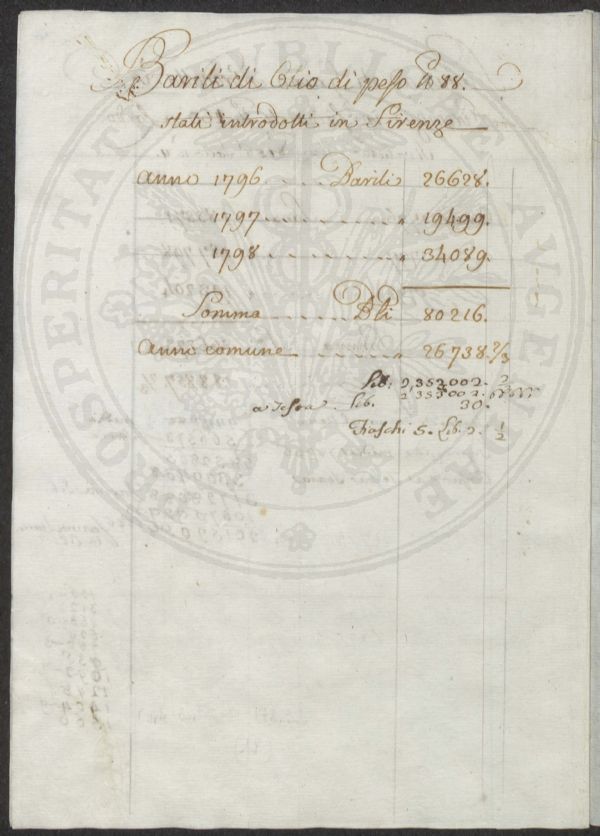 Barili di Olio di peso lb 88.
stati introdotti in Firenze
Anno 1796 Barili 26628.
1797 " 19499.
1798 " 34089.
Somma Bli 80216.
Anno comune " 26738. 2/3
Lib. 2,353,002. 2/3
2,353,002.
a Testa Lib. 30.
Fiaschi 5. Lib. 1/2
PROSPERITATI PUBLICAE AUGENDAE